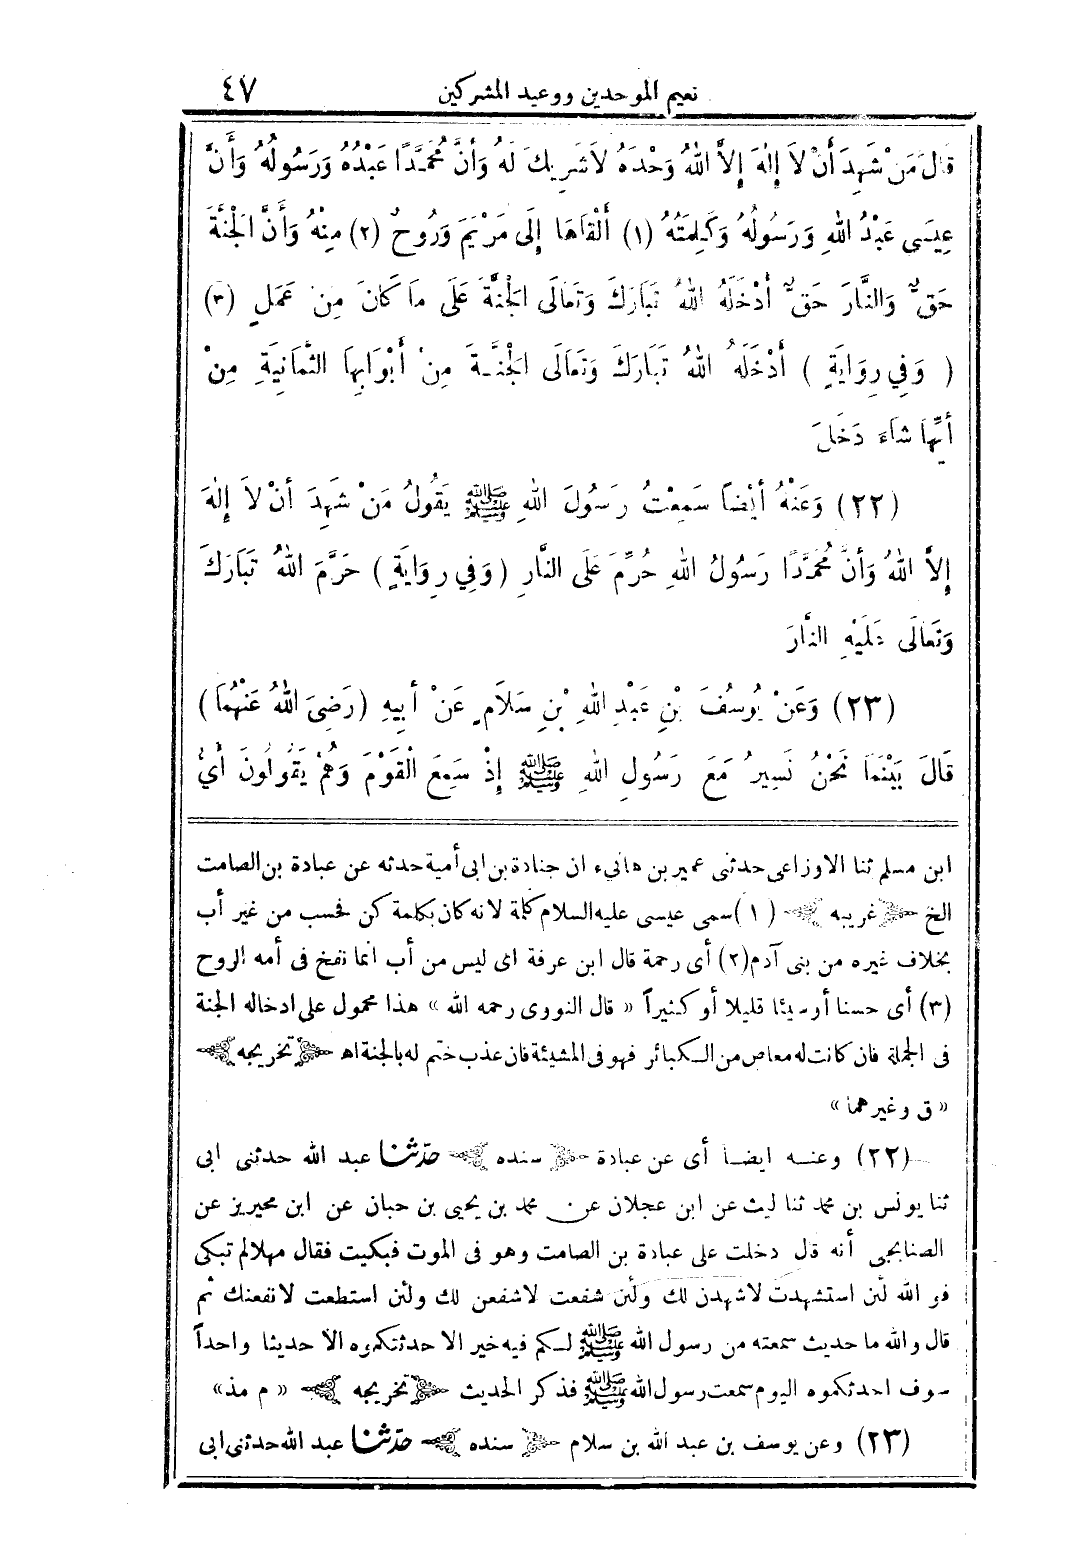 نعيم الموحدين ووعيد المشركين ٤٧
قَالَ مَنْ شَهِدَ أَنْ لاَ إِلٰهَ إِلاَّ اللهُ وَحْدَهُ لاَشَرِيكَ لَهُ وَأَنَّ مُحَمَّدًا عَبْدُهُ وَرَسُولُهُ وَأَنَّ
عِيسَى عَبْدُ اللهِ وَرَسُولُهُ وَكَلِمَتُهُ (١) أَلْقَاهَا إِلَى مَرْيَمَ وَرُوحٌ (٢) مِنْهُ وَأَنَّ الْجَنَّةَ
حَقٌّ وَالنَّارَ حَقٌّ أَدْخَلَهُ اللهُ تَبَارَكَ وَتَعَالَى الْجَنَّةَ عَلَى مَا كَانَ مِنْ عَمَلٍ (٣)
( وَفِي رِوَايَةٍ ) أَدْخَلَهُ اللهُ تَبَارَكَ وَتَعَالَى الْجَنَّةَ مِنْ أَبْوَابِهَا الثَّمَانِيَةِ مِنْ
أَيِّهَا شَاءَ دَخَلَ
(٢٢) وَعَنْهُ أَيْضًا سَمِعْتُ رَسُولَ اللهِ ﷺ يَقُولُ مَنْ شَهِدَ أَنْ لاَ إِلٰهَ
إِلاَّ اللهُ وَأَنَّ مُحَمَّدًا رَسُولُ اللهِ حُرِّمَ عَلَى النَّارِ ( وَفِي رِوَايَةٍ ) حَرَّمَ اللهُ تَبَارَكَ
وَتَعَالَى عَلَيْهِ النَّارَ
(٢٣) وَعَنْ يُوسُفَ بْنِ عَبْدِ اللهِ بْنِ سَلاَمٍ عَنْ أَبِيهِ (رَضِيَ اللهُ عَنْهُمَا)
قَالَ بَيْنَمَا نَحْنُ نَسِيرُ مَعَ رَسُولِ اللهِ ﷺ إِذْ سَمِعَ الْقَوْمَ وَهُمْ يَقُولُونَ أَيُّ
ابن مسلم ثنا الاوزاعى حدثنى عمير بن هانىء ان جنادة بن ابى أمية حدثه عن عبادة بن الصامت
الخ غريبه (١) سمى عيسى عليه السلام كلمة لانه كان بكلمة كن فحسب من غير أب
بخلاف غيره من بنى آدم (٢) أى رحمة قال ابن عرفة اى ليس من أب انما نفخ فى أمه الروح
(٣) أى حسنا أو سيئا قليلا أو كثيراً « قال النووى رحمه الله » هذا محمول على ادخاله الجنة
فى الجملة فان كانت له معاص من الكبائر فهو فى المشيئة فان عذب ختم له بالجنة اه تخريجه
« ق وغيرهما »
(٢٢) وعنه ايضا أى عن عبادة سنده حدّثنا عبد الله حدثنى ابى
ثنا يونس بن محمد ثنا ليث عن ابن عجلان عن محمد بن يحيى بن حبان عن ابن محيريز عن
الصنابحى أنه قال دخلت على عبادة بن الصامت وهو فى الموت فبكيت فقال مهلا لم تبكى
فو الله لئن استشهدت لاشهدن لك ولئن شفعت لاشفعن لك ولئن استطعت لانفعنك ثم
قال والله ما حديث سمعته من رسول الله ﷺ لكم فيه خير الا حدثتكموه الا حديثا واحداً
سوف احدثكموه اليوم سمعت رسول الله ﷺ فذكر الحديث تخريجه « م مذ»
(٢٣) وعن يوسف بن عبد الله بن سلام سنده حدّثنا عبد الله حدثنى ابى